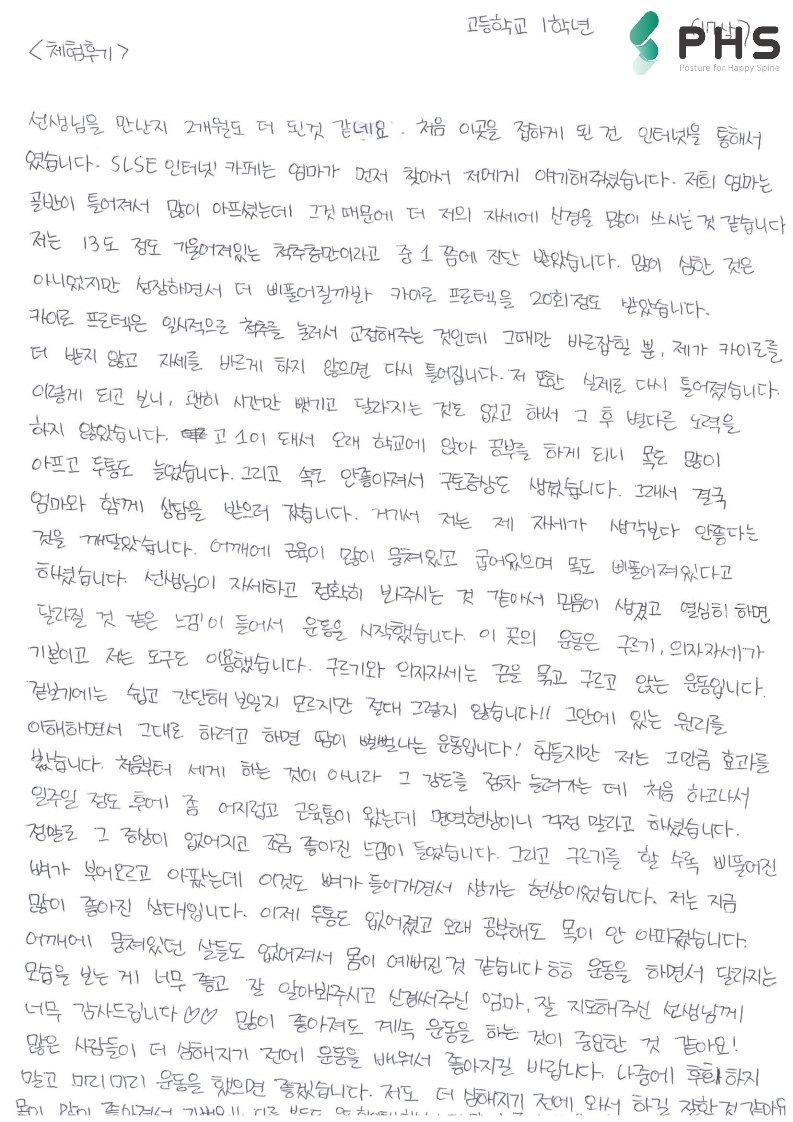 고등학교 1학년 (17살)
PHS
Posture for Happy Spine
<체험후기>
선생님을 만난지 2개월도 더 된것 같네요. 처음 이곳을 접하게 된 건 인터넷을 통해서
였습니다. SLSE 인터넷 카페는 엄마가 먼저 찾아서 저에게 얘기해주셨습니다. 저희 엄마는
골반이 틀어져서 많이 아프셨는데 그것 때문에 더 저의 자세에 신경을 많이 쓰시는 것 같습니다
저는 13도 정도 기울어져있는 척추측만이라고 중1쯤에 진단 받았습니다. 많이 심한 것은
아니었지만 성장하면서 더 삐뚤어질까봐 카이로 프로텍을 20회정도 받았습니다.
카이로 프로텍은 일시적으로 척추를 눌러서 교정해주는 것인데 그때만 바로잡힐 뿐, 제가 카이로를
더 받지 않고 자세를 바르게 하지 않으면 다시 틀어집니다. 저 또한 실제로 다시 틀어졌습니다.
이렇게 되고 보니, 괜히 시간만 뺏기고 달라지는 것도 없고 해서 그 후 별다른 노력을
하지 않았습니다. 고1이 돼서 오래 학교에 앉아 공부를 하게 되니 목도 많이
아프고 두통도 늘었습니다. 그리고 속도 안좋아져서 구토증상도 생겼습니다. 그래서 결국
엄마와 함께 상담을 받으러 갔습니다. 거기서 저는 제 자세가 생각보다 안좋다는
것을 깨달았습니다. 어깨에 근육이 많이 뭉쳐있고 굽어있으며 목도 삐뚤어져있다고
하셨습니다. 선생님이 자세하고 정확히 봐주시는 것 같아서 믿음이 생겼고 열심히 하면
달라질 것 같은 느낌이 들어서 운동을 시작했습니다. 이 곳의 운동은 구르기, 의자자세가
기본이고 저는 도구도 이용했습니다. 구르기와 의자자세는 끈을 묶고 구르고 앉는 운동입니다.
겉보기에는 쉽고 간단해 보일지 모르지만 절대 그렇지 않습니다!! 그안에 있는 원리를
이해하면서 그대로 하려고 하면 땀이 뻘뻘나는 운동입니다! 힘들지만 저는 그만큼 효과를
봤습니다. 처음부터 세게 하는 것이 아니라 그 강도를 점차 늘려가는 데 처음 하고나서
일주일 정도 후에 좀 어지럽고 근육통이 왔는데 면역현상이니 걱정 말라고 하셨습니다.
정말로 그 증상이 없어지고 조금 좋아진 느낌이 들었습니다. 그리고 구르기를 할 수록 삐뚤어진
뼈가 부어오르고 아팠는데 이것도 뼈가 들어가면서 생기는 현상이었습니다. 저는 지금
많이 좋아진 상태입니다. 이제 두통도 없어졌고 오래 공부해도 목이 안 아파졌습니다.
어깨에 뭉쳐있던 살들도 없어져서 몸이 예뻐진 것 같습니다 ㅎㅎ 운동을 하면서 달라지는
모습을 보는 게 너무 좋고 잘 알아봐주시고 신경써주신 엄마, 잘 지도해주신 선생님께
너무 감사드립니다♡♡ 많이 좋아져도 계속 운동을 하는 것이 중요한 것 같아요!
많은 사람들이 더 심해지기 전에 운동을 배워서 좋아지길 바랍니다. 나중에 후회하지
말고 미리미리 운동을 했으면 좋겠습니다. 저도 더 심해지기 전에 와서 하길 잘한 것 같아요
몸이 많이 좋아져서 기뻐요!!